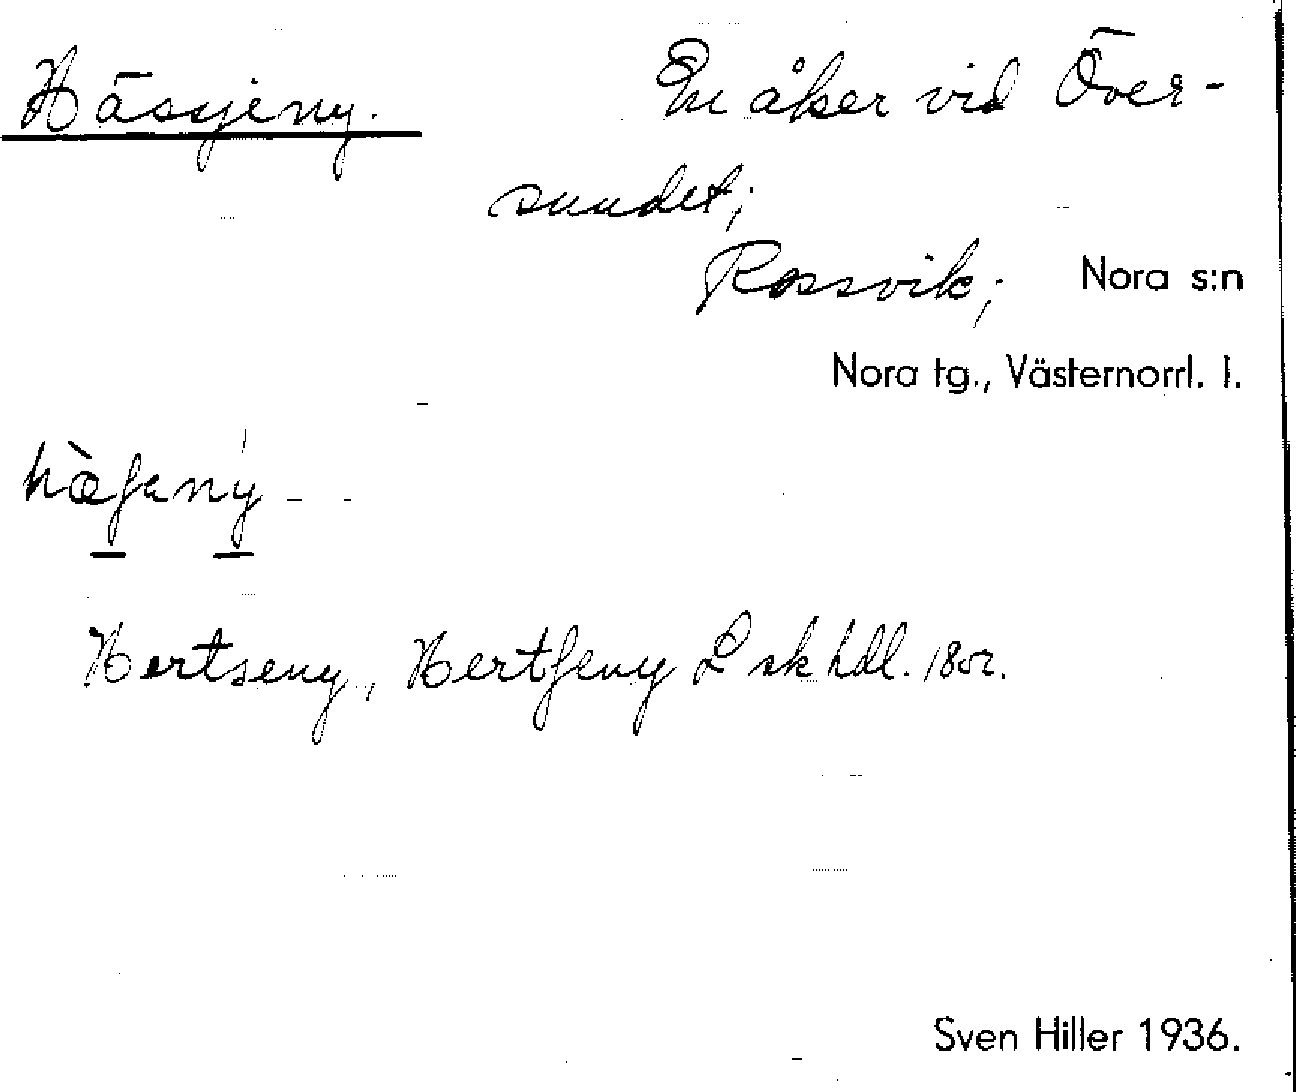 Häsyeny. En åker vid Över-
sundet;
Rossvik; Nora s:n
Nora tg., Västernorrl. l.
Hertseny, Hertseny L sk hdl. 1802.
Sven Hiller 1936.